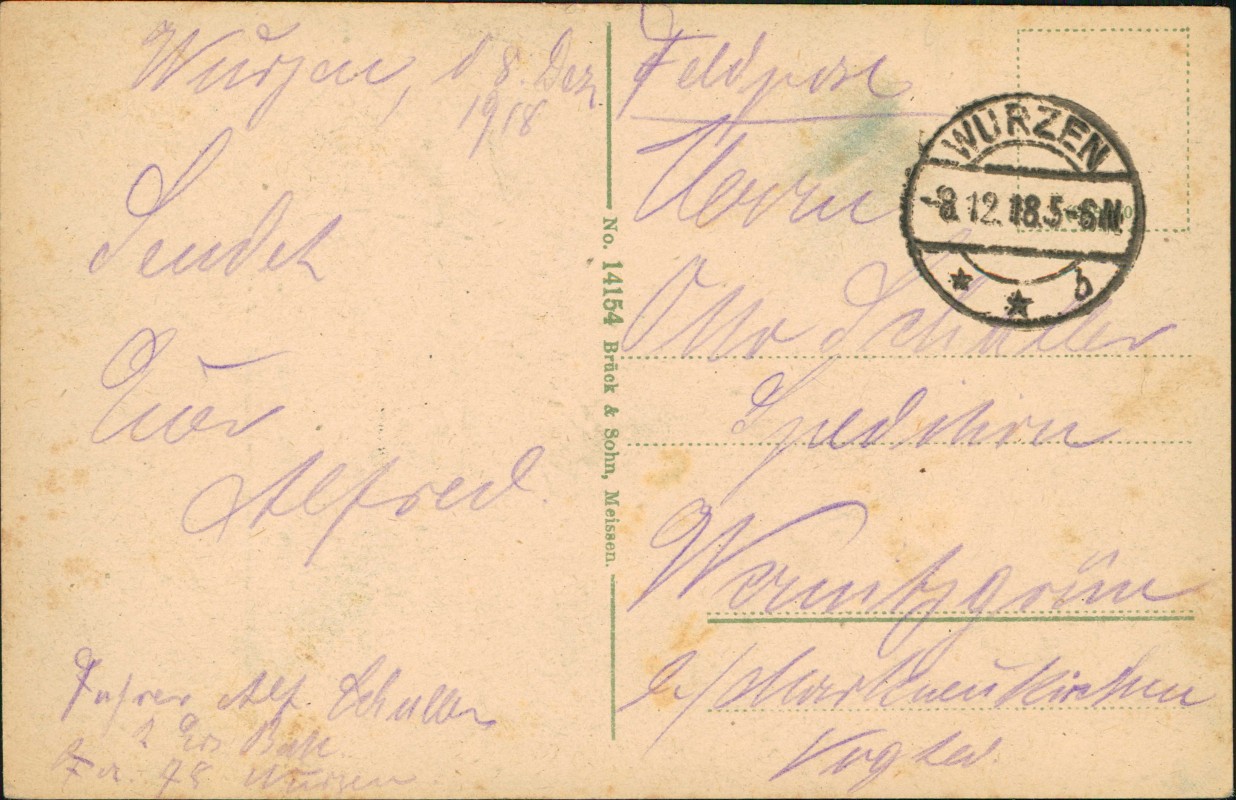 Wurzen, d 8. Dez
1918
Sendet
Euer
Alfred.
Fahrer Alf. Schuller
2 Ers Batt
F. A. 78 Wurzen
No. 14154 Brück & Sohn, Meissen.
Feldpost
Herrn
Otto Schuller
Spedition
Wernitzgrün
b/ Markneukirchen
Vogtld.
WURZEN
-8.12.18.5-6N.
* * b